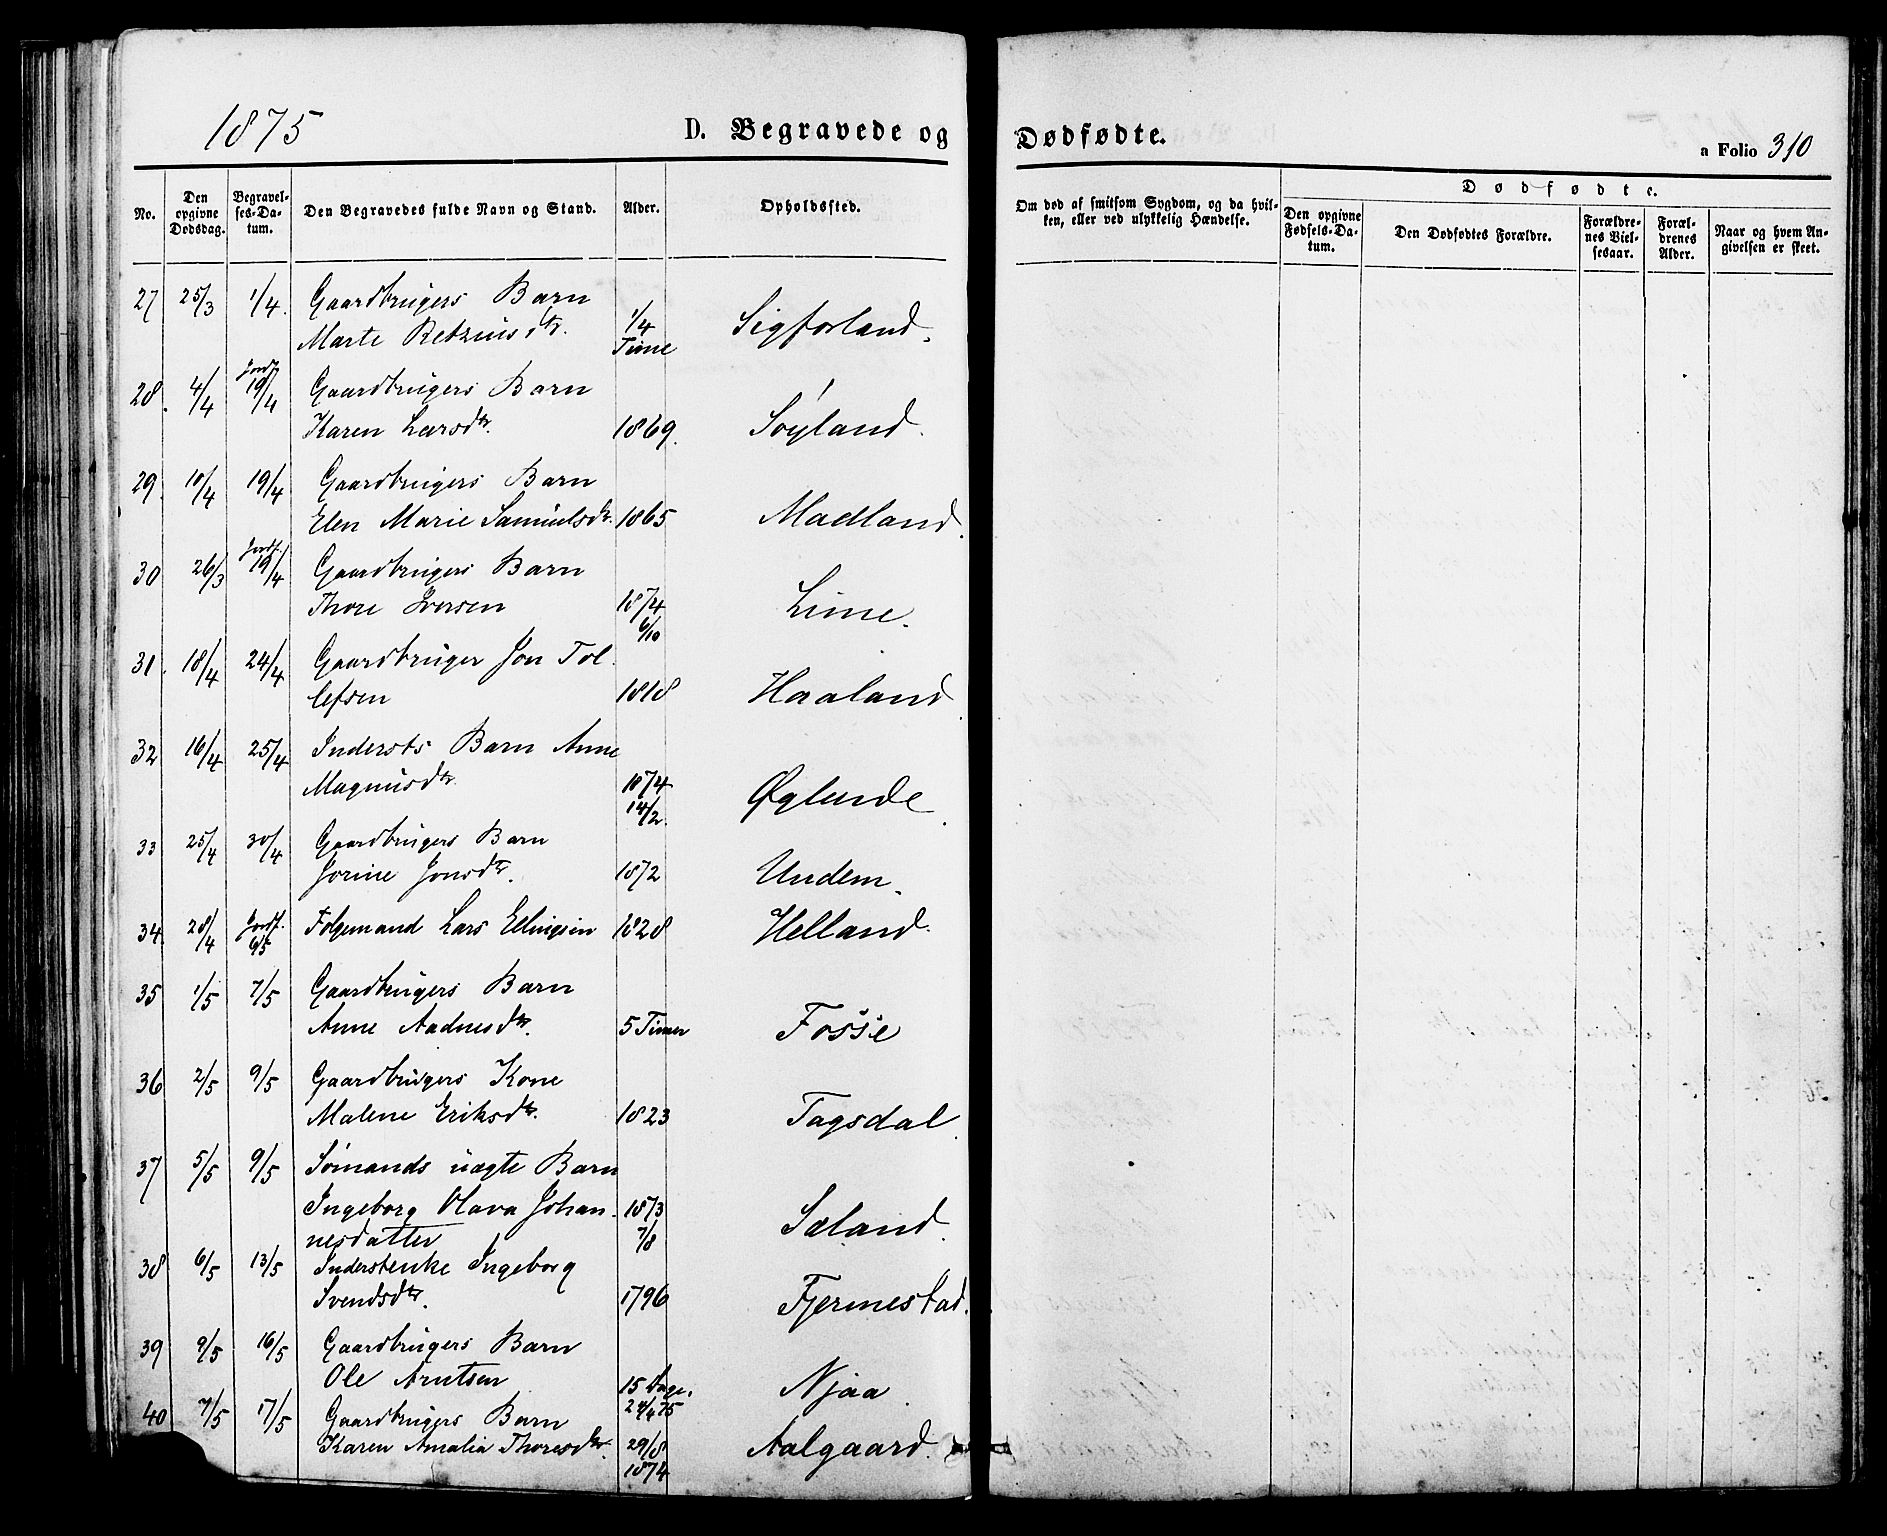 1875
D. Begravede og
Dødfødte.
a Folio 310
No.
Den opgivne Dødsdag.
Begravelses-Datum.
Den Begravedes fulde Navn og Stand.
Alder.
Opholdssted.
Om død af smitsom Sygdom, og da hvilken, eller ved ulykkelig Hændelse.
Dødfødte.
Den opgivne Fødsels-Datum.
Den Dødfødtes Forældre.
Forældrenes Vielsesaar.
Forældrenes Alder.
Naar og hvem Angivelsen er skeet.
27 25/3 1/4. Gaardbrugers Barn
Marte Retziusdtr. 1/4 Time Sigforland.
28. 4/4 Jordf. 19/4 Gaardbrugers Barn
Karen Larsdtr. 1869. Søyland.
29. 10/4 19/4 Gaardbrugers Barn
Elen Marie Samuelsdtr. 1865 Madland.
30 26/3 Jordf. 19/4 Gaardbrugers Barn
Thore Iversen 1874 6/10 Lime.
31. 18/4 24/4 Gaardbruger Jon Tol-
lefsen 1818 Haaland.
32 16/4 25/4 Indersts Barn Anne
Magnusdtr. 1874 14/2. Øglende.
33 25/4 30/4 Gaardbrugers Barn
Jorine Jonsdtr. 1872 Undem.
34. 28/4 Jordf. 6/5 Folgemand Lars Ellingsen 1828 Helland.
35 1/5 7/5 Gaardbrugers Barn
Anne Aadnesdtr. 5 Timer Fosse
36 2/5 9/5 Gaardbrugers Kone
Malene Eriksdtr. 1823 Tagsdal.
37 5/5 9/5 Sømands uægte Barn
Ingeborg Olava Johan- 1873 7/8 Sæland.
nesdatter
38 6/5 13/5 Inderstenke Ingeborg
Svendsdtr. 1796 Fjermestad.
39 9/5 16/5 Gaardbrugers Barn
Ole Arntsen 15 Dage. 24/4 75 Njaa
40 7/5 17/5 Gaardbrugers Barn
Karen Amalia Thoresdtr. 29/8 1874 Aalgaard.